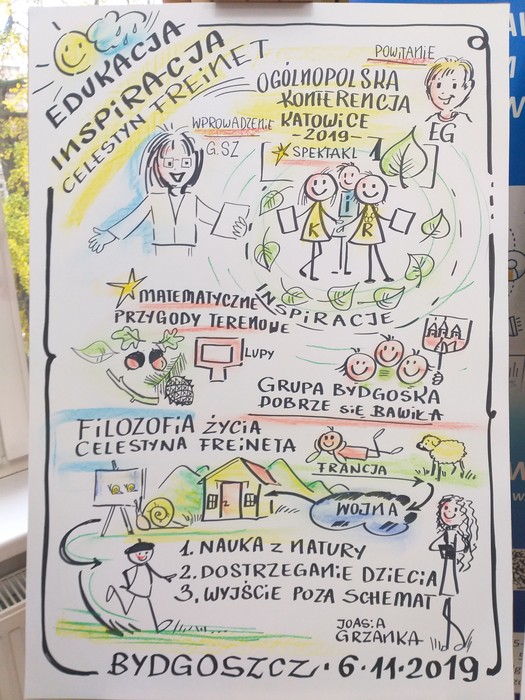 EDUKACJA
INSPIRACJA
CELESTYN FREINET
POWITANIE
OGÓLNOPOLSKA
KONFERENCJA
KATOWICE
-2019-
EG
WPROWADZENIE
G.SZ
SPEKTAKL 1
K i R
INSPIRACJE
MATEMATYCZNE
PRZYGODY TERENOWE
LUPY
GRUPA BYDGOSKA
DOBRZE SIĘ BAWIŁA
FILOZOFIA ŻYCIA
CELESTYNA FREINETA
FRANCJA
WOJNA
1. NAUKA Z NATURY
2. DOSTRZEGANIE DZIECIA
3. WYJŚCIE POZA SCHEMAT
JOASIA
GRZANKA
BYDGOSZCZ · 6 · 11 · 2019